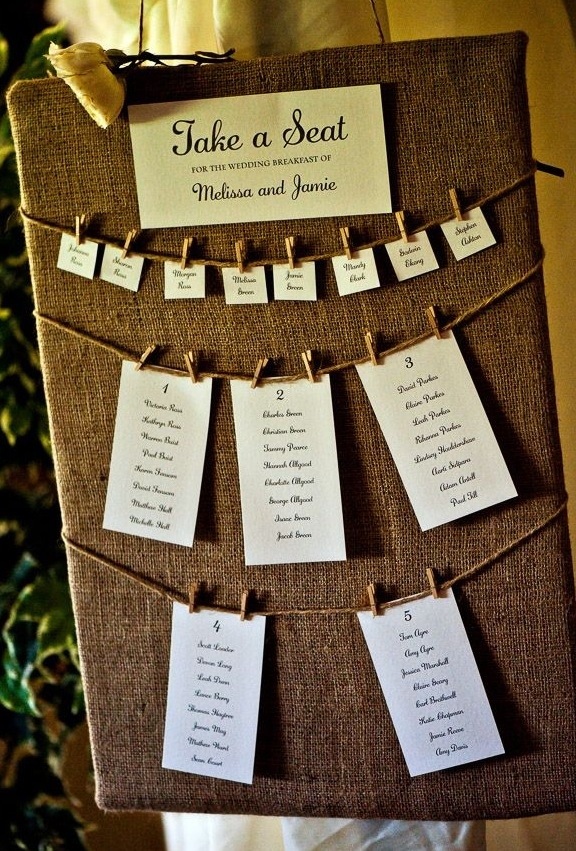 Take a Seat
FOR THE WEDDING BREAKFAST OF
Melissa and Jamie
Julianne
Ross
Sharon
Ross
Morgan
Ross
Melissa
Green
Jamie
Green
Mandy
Clark
Godwin
Ekong
Stephen
Ashton
1
Victoria Ross
Kathryn Ross
Warren Boist
Paul Boist
Karen Fansom
David Fansom
Matthew Hall
Michelle Hall
2
Charles Green
Christian Green
Tammy Pearce
Hannah Allgood
Charlotte Allgood
George Allgood
Isaac Green
Jacob Green
3
David Parkes
Claire Parkes
Leah Parkes
Rihanna Parkes
Lindsey
Aarti
Adam
Paul Till
4
Scott
Devon Long
Leah Dunn
Lance Berry
Thomas
James May
Mathew Ward
Sean Court
5
Tom Agre
Amy Agre
Jessica Marshall
Claire Geary
Carl
Katie Chapman
Jamie Reeve
Amy Davis